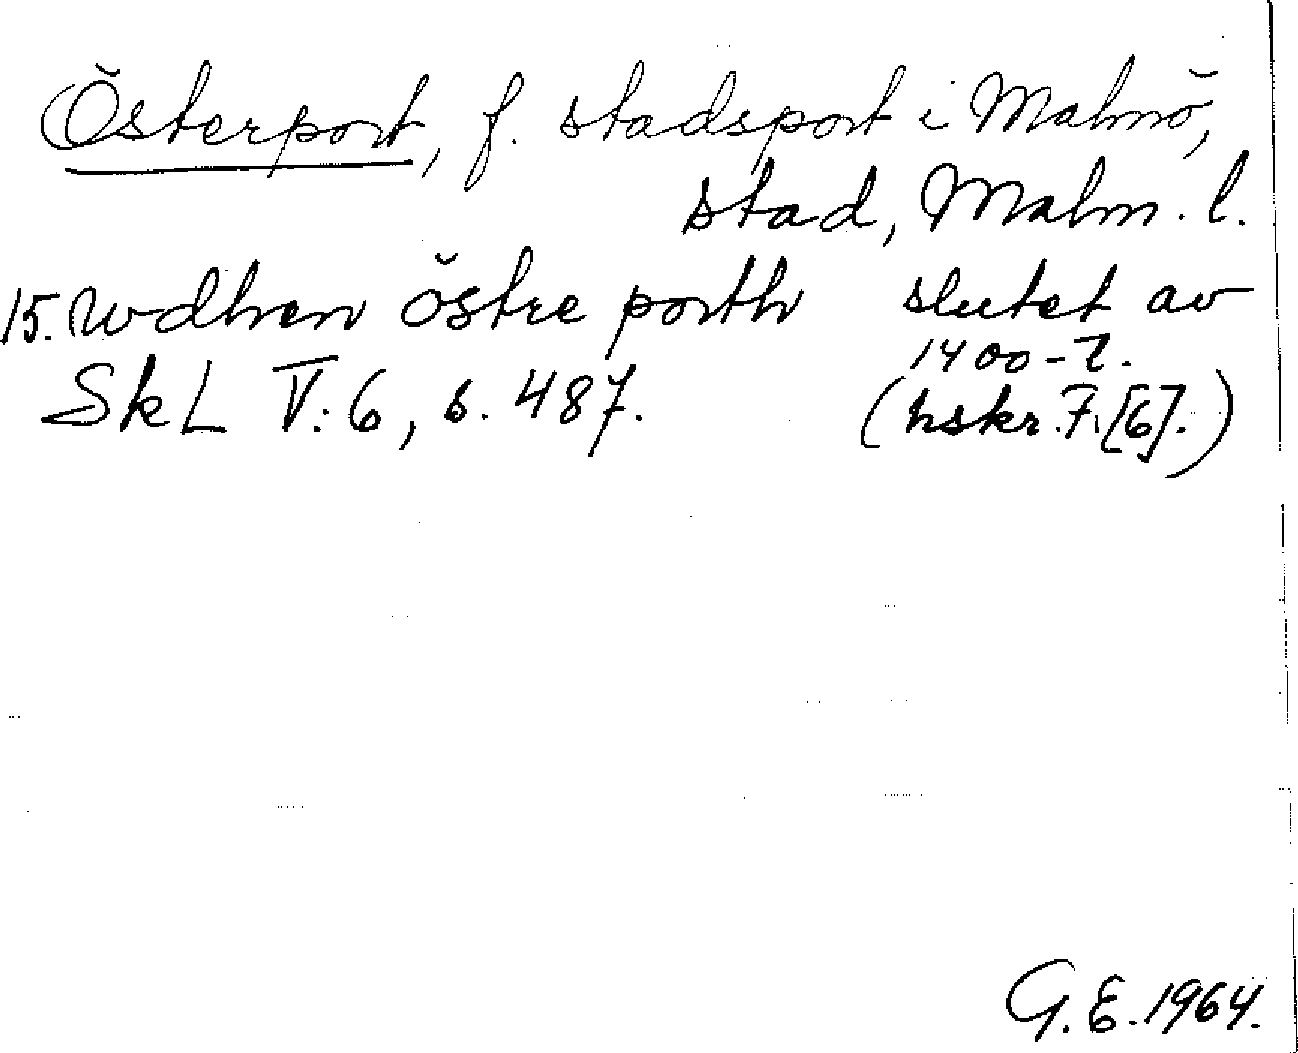 Österport, f. stadsport i Malmö,
stad, Malm. l.
15. wdhen östre porth slutet av
1400-t.
SkL V:6, s. 487. (hskr. F. [6].)
G. E. 1964.